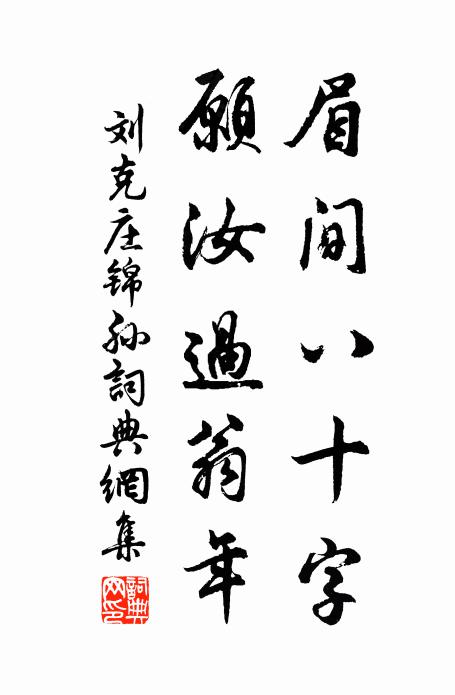 眉間八十字
願汝過翁年
刘克庄锦孙詞典網集
詞典网印